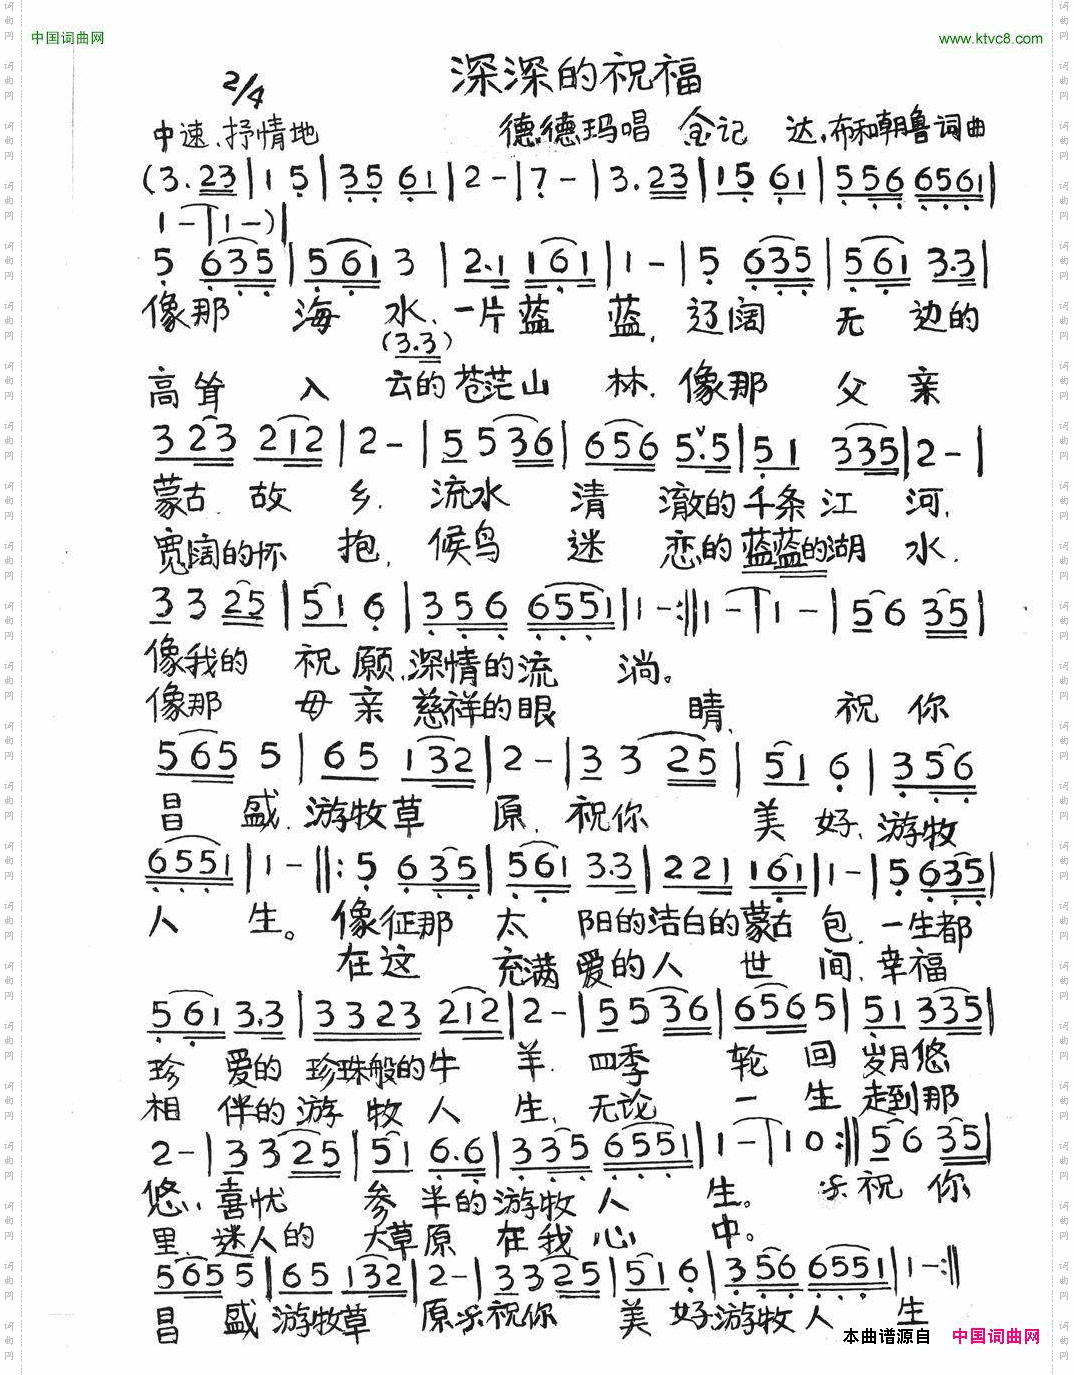 中国词曲网
www.ktvc8.com
深深的祝福
2/4
中速、抒情地
德德玛唱 金记 达、布和朝鲁词曲
(3.23|15|35 61|2-|?-|3.23|15 61|556 6561|
1-|1-)|
5 635|561 3|2.1 161|1-|5 635|561 3.3|
像那 海 水、一片蓝 蓝,辽阔 无 边的
(3.3)
高耸 入 云的苍茫山 林.像那 父 亲
3 23 212|2-|5 5 36|656 5.5|51 335|2-|
蒙古 故 乡. 流水 清 澈的千条江 河,
宽阔的怀 抱, 候鸟 迷 恋的蓝蓝的湖 水.
3 3 25|51 6|356 6551|1-:||1-|1-|56 35|
像我的 祝愿、深情的流 淌。
像那 母亲 慈祥的眼 睛, 祝你
565 5|65 132|2-|3 3 25|51 6|356
昌 盛、游牧草 原. 祝你 美 好、游牧
6551|1-||:5 635|561 3.3|221 161|1-|5 635|
人 生。像征那 太 阳的洁白的蒙古包、一生都
在这 充满爱的人 世 间、幸福
561 3.3|3323 212|2-|55 36|6565|51 335|
珍 爱的珍珠般的牛 羊. 四季 轮 回 岁月悠
相 伴的游牧人 生、无论 一 生 走到那
2-|3 3 25|51 6.6|335 6551|1-|10:||56 35|
悠、喜忧 参半的游牧人 生。 祝你
里、迷人的 大草原 在我心 中。
5655|65 132|2-|33 25|51 6|356 6551|1-:||
昌 盛 游牧草 原 祝你 美 好游牧人 生
本曲谱源自 中国词曲网